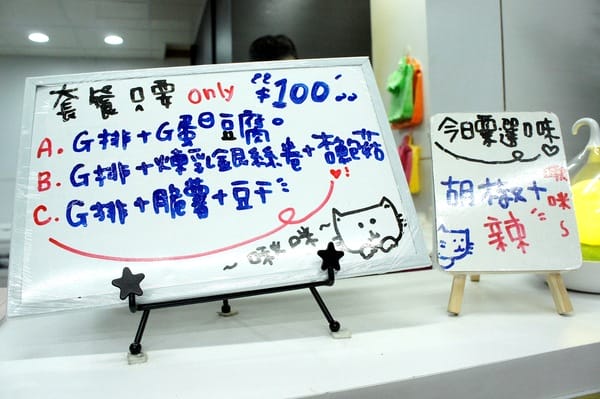 套餐只要 only $100
A. G排+G蛋豆腐。
B. G排+煉乳銀絲卷+杏鮑菇
C. G排+脆薯+豆干
~咪咪~
今日票選口味
胡椒+
辣
咪
s